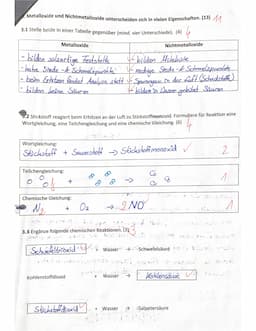 Metalloxide und Nichtmetalloxide unterscheiden sich in vielen Eigenschaften. (13) 11
3.1 Stelle beide in einer Tabelle gegenüber (mind. vier Unterschiede). (4) 4
Metalloxide Nichtmetalloxide
- bilden salzartige Feststoffe - bilden Moleküle
- hohe Siede- & Schmelzpunkte - niedrige Siede- & Schmelzpunkte
- beim Erhitzen findet Analyse statt
- bilden keine Säuren - bilden in Wasser gelöst Säuren
3.2 Stickstoff reagiert beim Erhitzen an der Luft zu Stickstoffmonoxid. Formuliere für Reaktion eine
Wortgleichung, eine Teilchengleichung und eine chemische Gleichung. (6) 4
Wortgleichung:
Stickstoff + Sauerstoff → Stickstoffmonoxid 2
Teilchengleichung:
1
Chemische Gleichung:
N2 + O2 → 2NO 1
3.3 Ergänze folgende chemischen Reaktionen. (3)
Schwefeldioxid + Wasser → Schwefelsäure
Kohlenstoffdioxid + Wasser → Kohlensäure
Stickstoffdioxid + Wasser → Salpetersäure